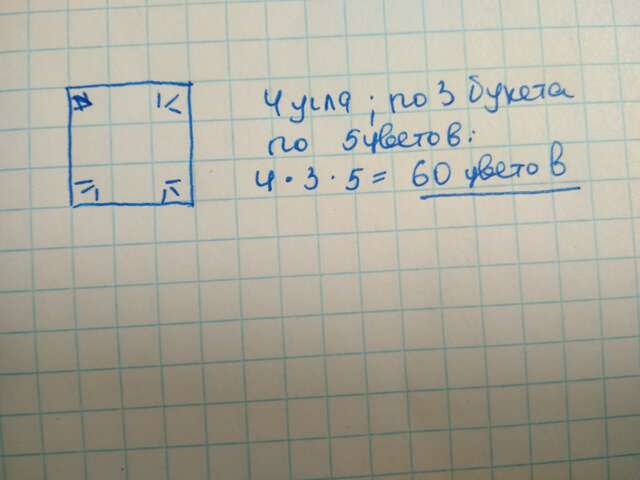 4 угла; по 3 букета
по 5 цветов:
4 · 3 · 5 = 60 цветов